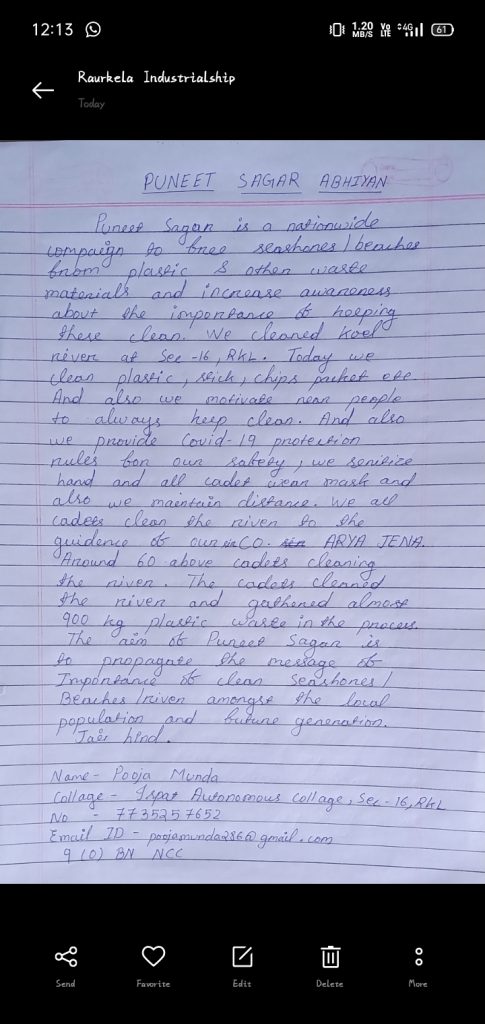 12:13
1.20 MB/S Vo LTE 4G 61
Raurkela Industrialship
Today
PUNEET SAGAR ABHIYAN
Puneet Sagar is a nationwide
compaign to free seashores/beaches
from plastic & other waste
materials and increase awareness
about the importance of keeping
these clean. We cleaned koel
river at Sec-16, RKL. Today we
clean plastic, stick, chips packet etc.
And also we motivate near people
to always keep clean. And also
we provide Covid-19 protection
rules for our safety, we senitize
hand and all cadet wear mask and
also we maintain distance. We all
cadets clean the river to the
guidence of our CO. ARYA JENA.
Around 60 above cadets cleaning
the river. The cadets cleaned
the river and gathered almost
900 kg plastic waste in the process.
The aim of Puneet Sagar is
to propagate the message of
Importance of clean Seashores/
Beaches/river amongst the local
population and future generation.
Jai hind.
Name - Pooja Munda
Collage - Ispat Autonomous collage, Sec-16, RKL
No - 7735257652
Email ID - poojamunda286@gmail.com
9 (O) BN NCC
Send Favorite Edit Delete More